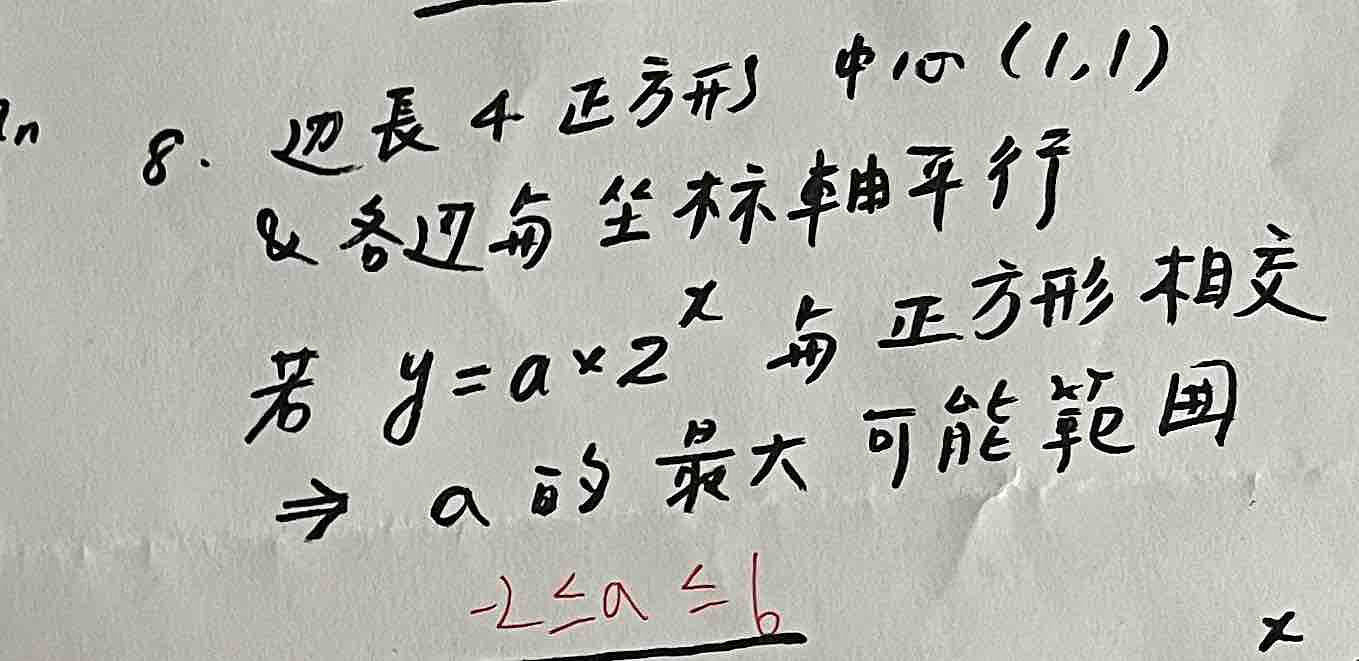 ln
8. 边長 4 正方形 中心 (1,1)
& 各边與坐标軸平行
若 y=a×2^x 與正方形相交
⇒ a 的最大可能範囲
-2≤a≤6
x